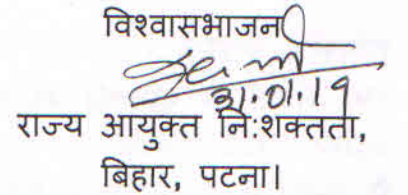 विश्वासभाजन
31.01.19
राज्य आयुक्त नि:शक्तता,
बिहार, पटना।